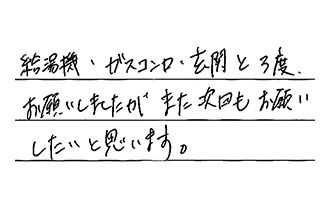 給湯機・ガスコンロ・玄関と3度、
お願いしましたが また次回も お願い
したいと思います。